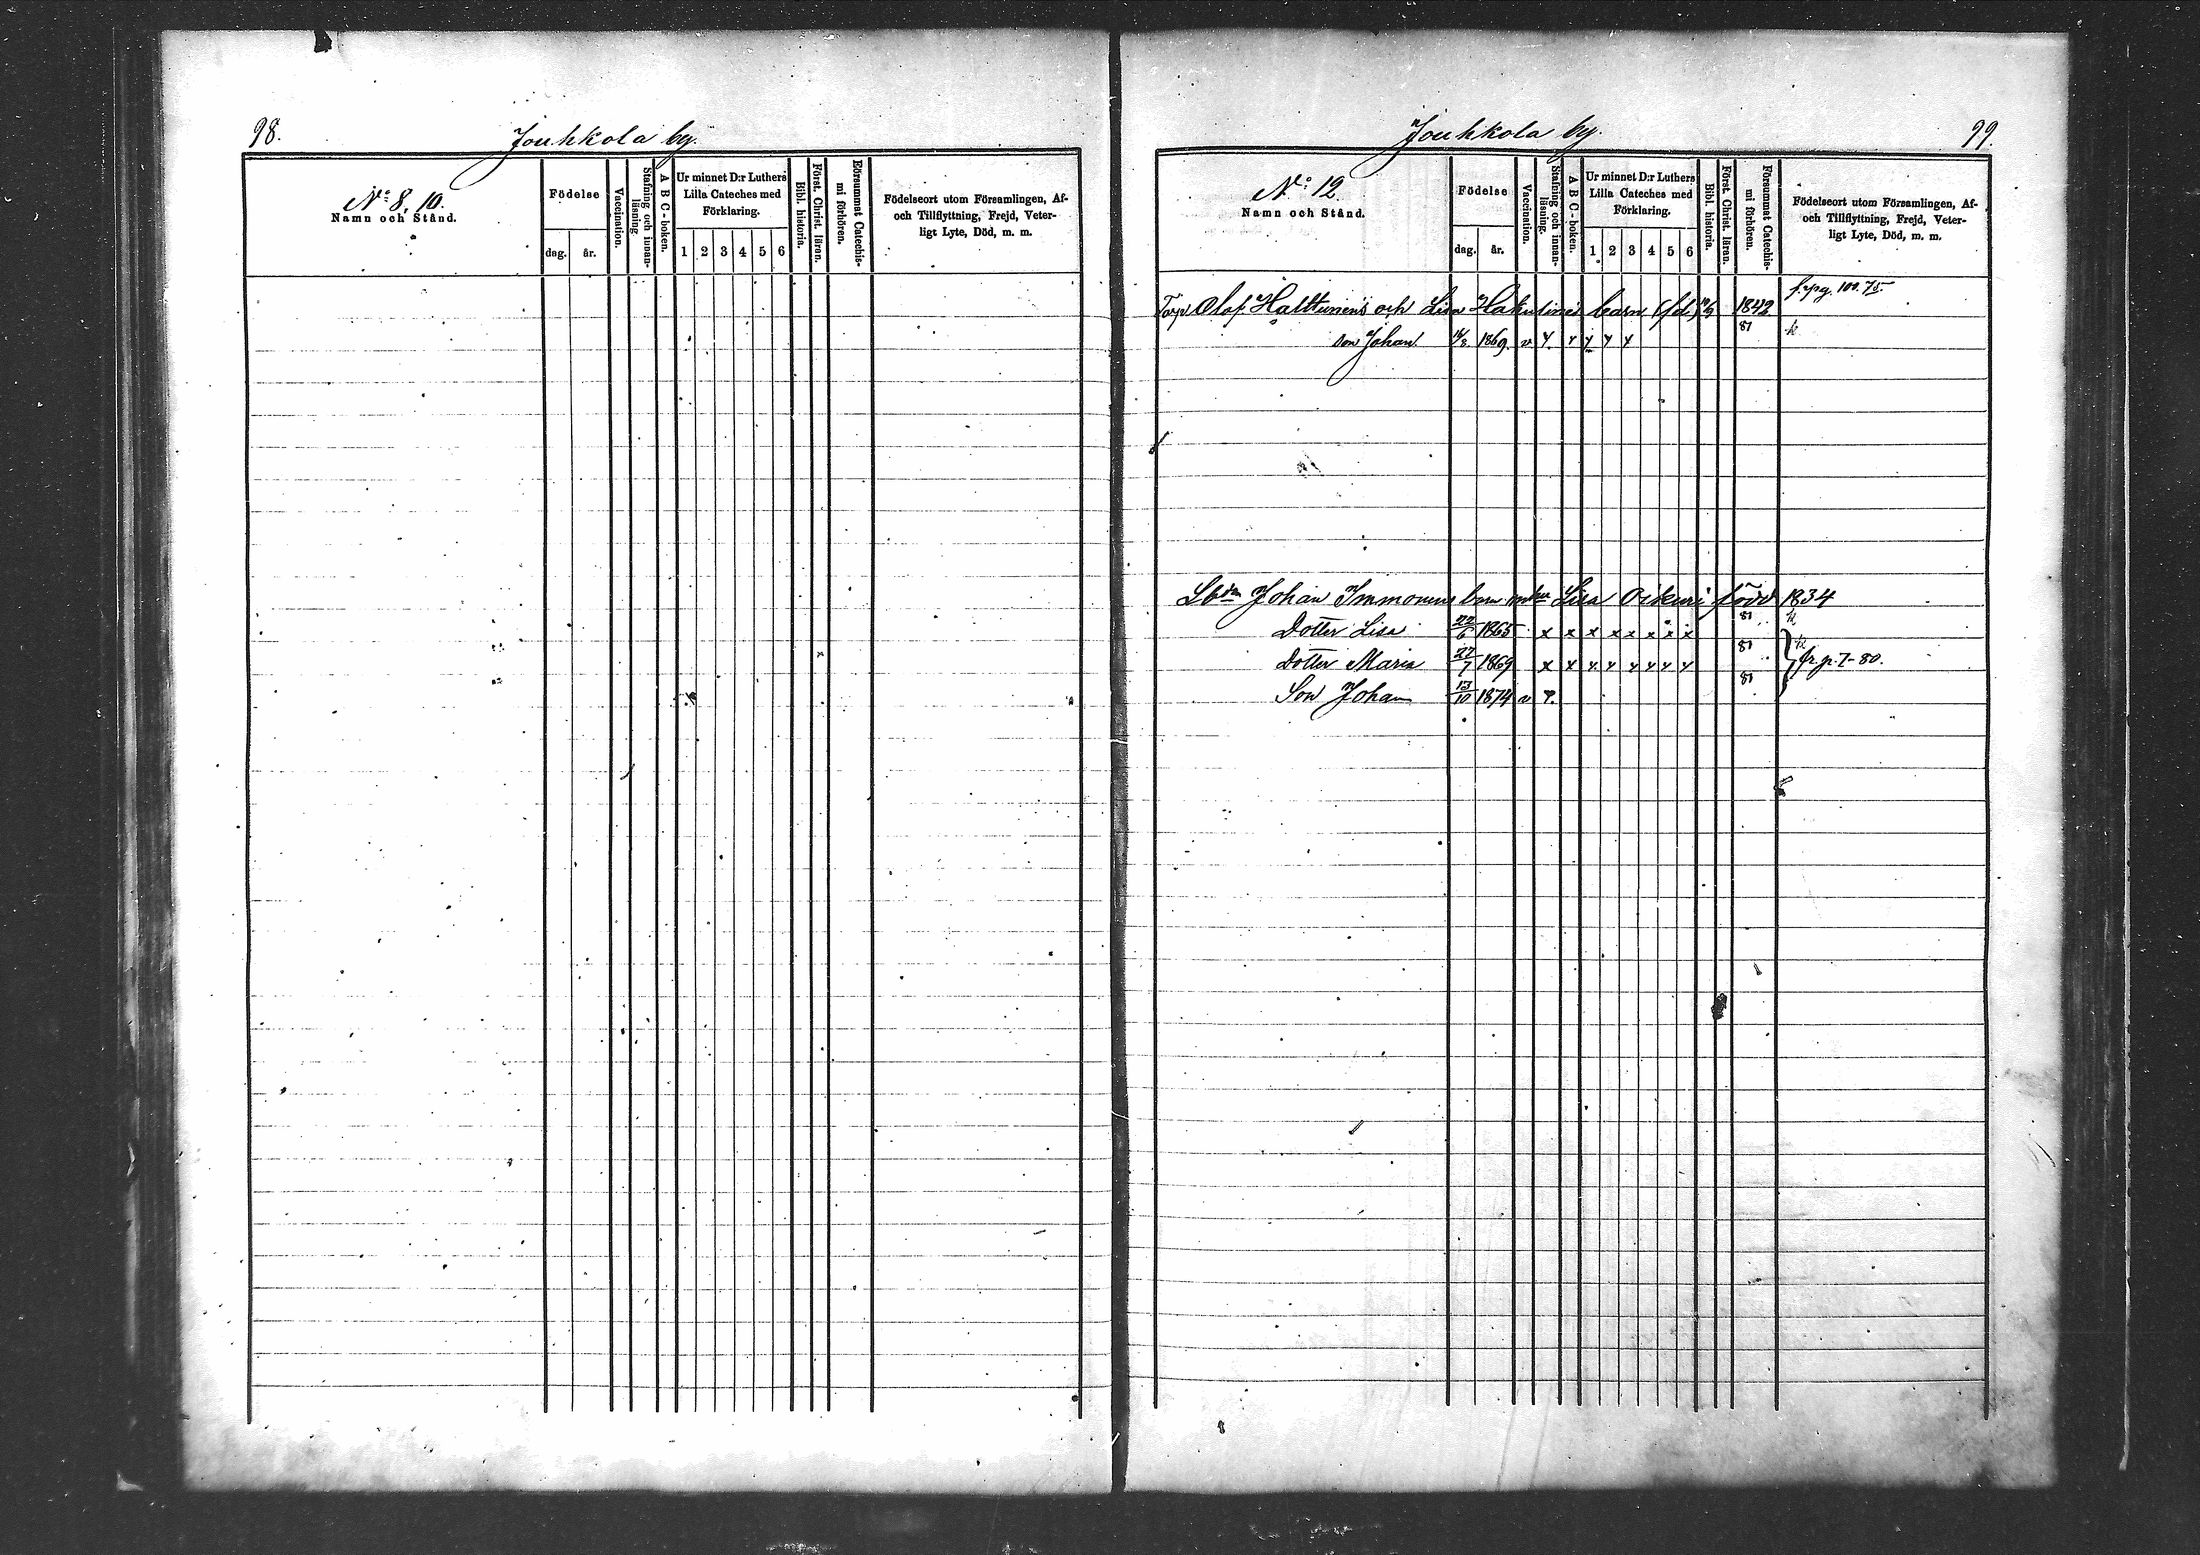 98.
Jouhkola by.
No: 8, 10.
Namn och Stånd.
Födelse
dag.
år.
Vaccination.
Stafning och innan-
läsning.
A B C-boken.
Ur minnet D:r Luthers
Lilla Cateches med
Förklaring.
1 2 3 4 5 6
Bibl. historia.
Först. Christ. läran.
Försummat Catechis-
mi förhören.
Födelseort utom Församlingen, Af-
och Tillflyttning, Frejd, Veter-
ligt Lyte, Död, m. m.
Jouhkola by.
99.
No: 12.
Namn och Stånd.
Födelse
dag.
år.
Vaccination.
Stafning och innan-
läsning.
A B C-boken.
Ur minnet D:r Luthers
Lilla Cateches med
Förklaring.
1 2 3 4 5 6
Bibl. historia.
Först. Christ. läran.
Försummat Catechis-
mi förhören.
Födelseort utom Församlingen, Af-
och Tillflyttning, Frejd, Veter-
ligt Lyte, Död, m. m.
f. pg. 100. 75.
Torp Olof Halttunens och Lisa Hakulines barn (fd. 1842
son Johan 16/8 1869. v 81 k
Johan Immonens barn m Lisa Oikuri född 1834
Dotter Lisa 22/6 1865 x x x x x x x x 81 k
Dotter Maria 27/7 1869 x x x x x x x x 81 k
fr. p. 7-80.
Son Johan 13/10 1874 v 81